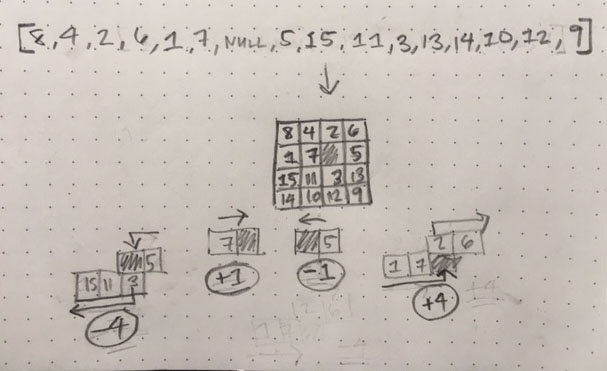 [8,4,2,6,1,7,NULL,5,15,11,3,13,14,10,12,9]
8 4 2 6
1 7 5
15 11 3 13
14 10 12 9
7
5
2 6
5
1 7
15 11 3
+1
-1
+4
-4